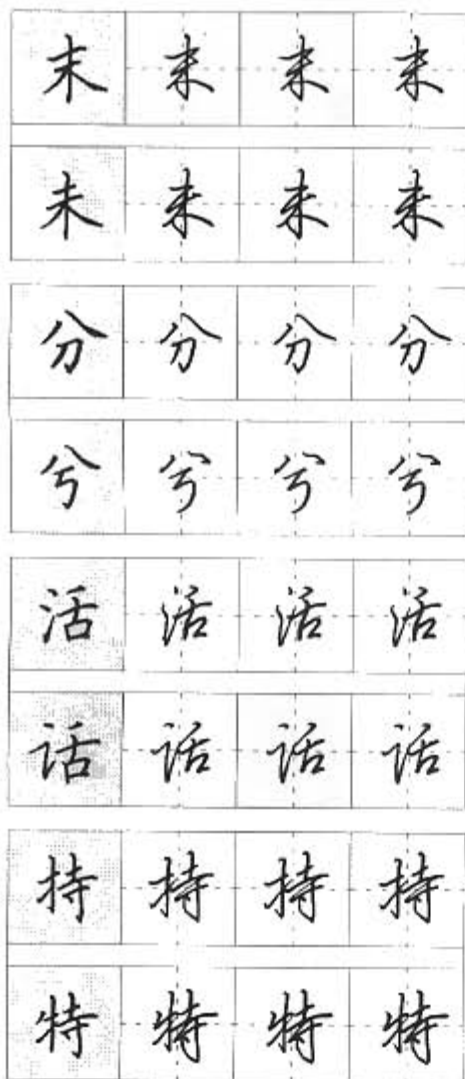 末 末 末 末
未 未 未 未
分 分 分 分
兮 兮 兮 兮
活 活 活 活
话 话 话 话
持 持 持 持
特 特 特 特